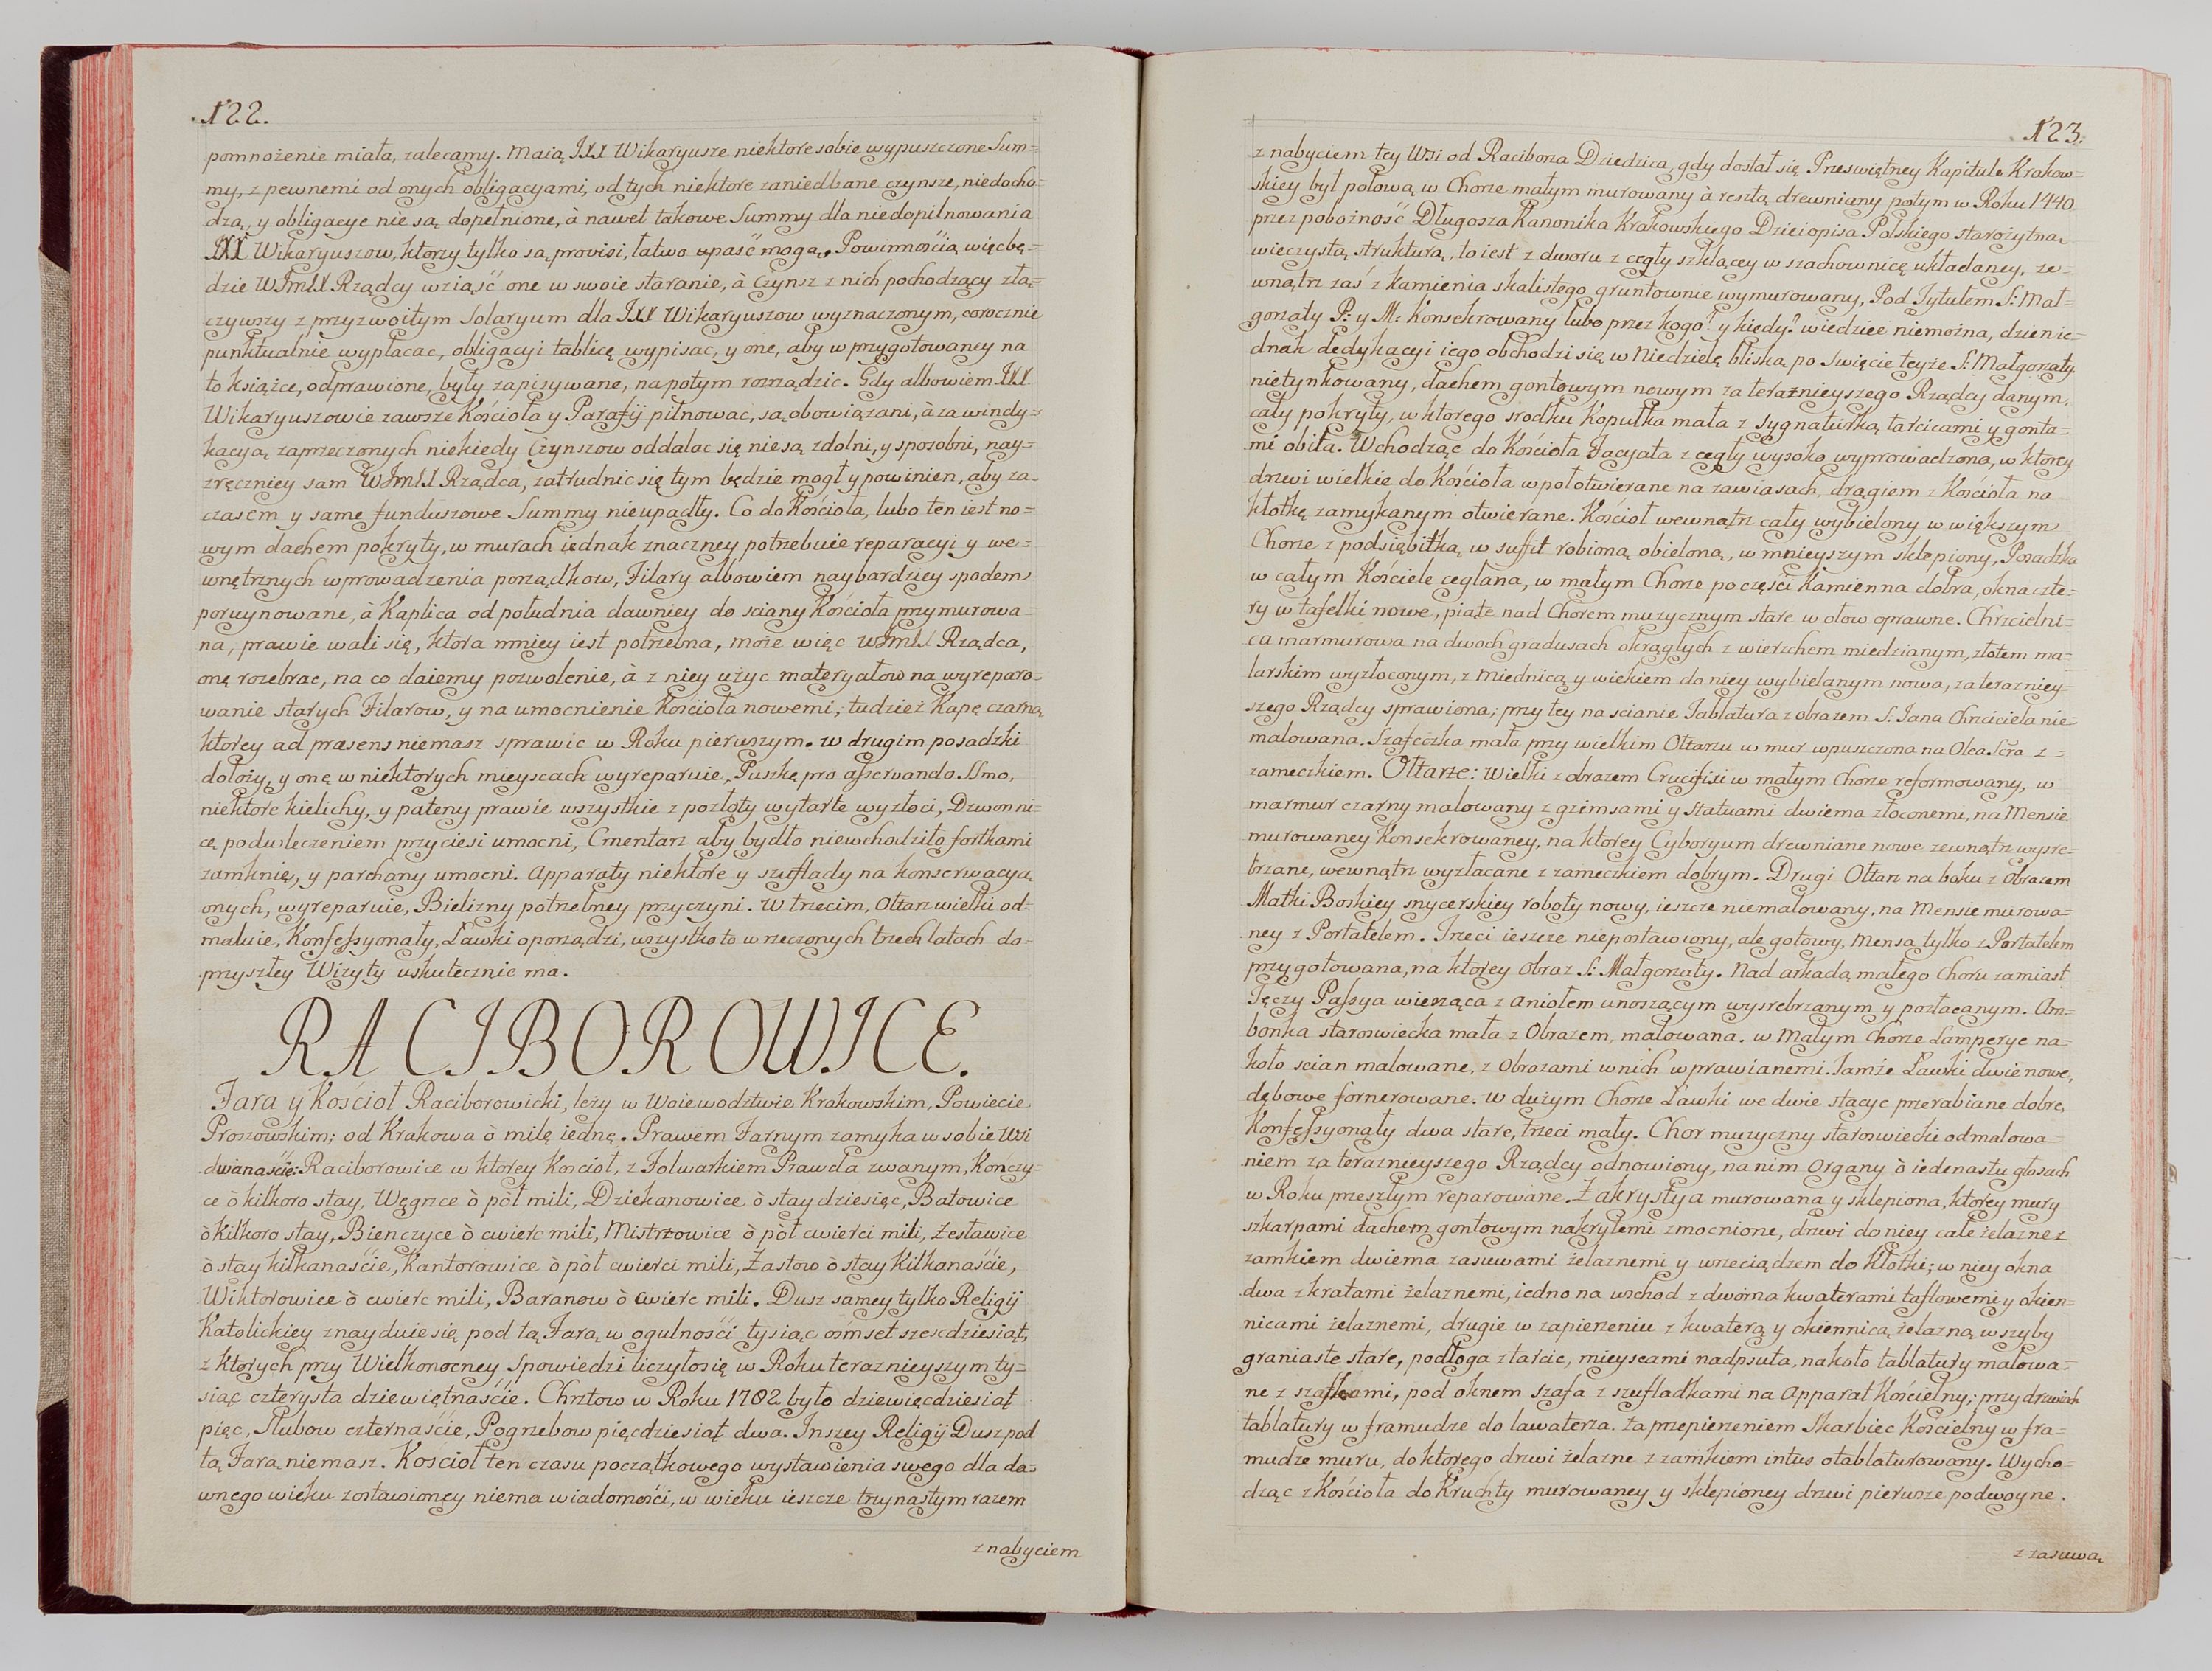 122.
pomnożenie miała, zalecamy. Maią IXX Wikaryusze niektore sobie wypuszczone Sum=
my, z pewnemi od onych obligacyami, od tych niektore zaniedbane czynsze, niedocho=
dzą, y obligacye nie są dopełnione, à nawet takowe Summy dla niedopilnowania
IXX Wikaryuszow, ktorzy tylko są provisi, łatwo upaść mogą. Powinnością więc bę=
dzie WJmIX Rządcy wziąść one w swoie staranie, à Czynsz z nich pochodzący złą=
czywszy z przyzwoitym Solaryum dla IXX Wikaryuszow wyznaczonym, corocznie
punktualnie wypłacac, obligacyi tablicę wypisac, y one, aby w przygotowaney na
to książce, odprawione, były zapisywane, napotym rozrządzic. Gdy albowiem IXX
Wikaryuszowie zawsze Kościoła y Parafij pilnowac, są obowiązani, à za windy=
kacyą zaprzeczonych niekiedy Czynszow oddalac się niesą zdolni, y sposobni, nay=
zręczniey sam WJmIX Rządca, zatrudnic się tym będzie mogł y powinien, aby za=
czasem y same funduszowe Summy nieupadły. Co do Kościoła, lubo ten iest no=
wym dachem pokryty, w murach iednak znaczney potrzebuie reparacyi y we=
wnętrznych wprowadzenia porządkow, Filary albowiem naybardziey spodem
poruynowane, à Kaplica od południa dawniey do sciany Kościoła przymurowa=
na, prawie wali się, ktora mniey iest potrzebna, może więc WJmIX Rządca,
onę rozebrac, na co daiemy pozwolenie, à z niey użyc materyałow na wyreparo=
wanie starych Filarow, y na umocnienie Kościoła nowemi, tudzież Kapę czarną
ktorey ad præsens niemasz sprawic w Roku pierwszym. w drugim posadzki
dołoży, y onę w niektorych mieyscach wyreparuie, Puszkę pro asservando SSmo,
niektore kielichy, y pateny prawie wszystkie z pozłoty wytarte wyzłoci, Dzwonni=
cę podwleczeniem przyciesi umocni, Cmentarz aby bydło niewchodziło fortkami
zamknię, y parchany umocni. Apparaty niektore y szuflady na konserwacyą
onych, wyreparuie, Bielizny potrzebney przyczyni. W trzecim, Ołtarz wielki od=
maluie, Konfessyonały, Ławki oporządzi, wszystko to w rzeczonych trzech latach do=
przyszłey Wizyty uskutecznic ma.
RACIBOROWICE.
Fara y Kościoł Raciborowicki, leży w Woiewodztwie Krakowskim, Powiecie
Proszowskim; od Krakowa ò milę iednę. Prawem Farnym zamyka w sobie Wsi
dwanaście: Raciborowice w ktorey Kościoł, z Folwarkiem Prawda zwanym, Kończy=
ce ò kilkoro stay, Węgrzce ò pòł mili, Dziekanowice ò stay dziesięc, Batowice
ò kilkoro stay, Bienczyce ò cwierc mili, Mistrzowice ò pòł cwierci mili, Zesławice
ò stay kilkanaście, Kantorowice ò pòł cwierci mili, Zastow ò stay Kilkanaście,
Wiktorowice ò cwierc mili, Baranow ò cwierc mili. Dusz samey tylko Religij
Katolickiey znayduie się pod tą Farą w ogulności tysiąc ośmset szescdziesiąt,
z ktorych przy Wielkonocney Spowiedzi liczyło się w Roku teraznieyszym ty=
siąc czterysta dziewiętnaście. Chrztow w Roku 1782 było dziewięcdziesiąt
pięc, Slubow czternaście, Pogrzebow pięcdziesiąt dwa. Inszey Religij Dusz pod
tą Farą niemasz. Kościoł ten czasu początkowego wystawienia swego dla da=
wnego wieku zostawioney niema wiadomości, w wieku ieszcze trzynastym razem
z nabyciem
123.
z nabyciem tey Wsi od Racibora Dziedzica, gdy dostał się Przeswiętney Kapitule Krakow=
skiey był połową w Chorze małym murowany à resztą drewniany potym w Roku 1440
przez pobożność Długosza Kanonika Krakowskiego Dzieiopisa Polskiego starożytną
wieczystą strukturą, to iest z dworu z cegły szklącey w szachownicę układaney, ze=
wnątrz zaś z kamienia skalistego gruntownie wymurowany, Pod Tytułem S: Mał=
gorzaty P: y M: Konsekrowany lubo przez kogo? y kiedy? wiedziec niemożna, dzien ie=
dnak dedykacyi iego obchodzi się w Niedzielę bliską po Swięcie teyże S: Małgorzaty.
nietynkowany, dachem gontowym nowym za teraznieyszego Rządcy danym,
cały pokryty, w ktorego srodku Kopułka mała z Sygnaturką tarcicami y gonta=
mi obita. Wchodząc do Kościoła Facyata z cegły wysoko wyprowadzona, w ktorey
drzwi wielkie do Kościoła wpoł otwierane na zawiasach, drągiem z Kościoła na
kłotkę zamykanym otwierane. Kościoł wewnątrz cały wybielony w większym
Chorze z podsiębitką w sufit robioną obieloną, w mnieyszym sklepiony, Posadzka
w całym Kościele ceglana, w małym Chorze po części Kamienna dobra, okna czte=
ry w tafelki nowe, piąte nad Chorem muzycznym stare w ołow oprawne. Chrzcielni=
ca marmurowa na dwoch gradusach okrągłych z wierzchem miedzianym, złotem ma=
larskim wyzłoconym, z miednicą y wiekiem do niey wybielanym nowa, za terazniey=
szego Rządcy sprawiona; przy tey na scianie Tablatura z obrazem S: Jana Chrzciciela nie=
malowana. Szafeczka mała przy wielkim Ołtarzu w mur wpuszczona na Olea Scra z =
zameczkiem. Ołtarze: Wielki z obrazem Crucifixi w małym Chorze reformowany, w
marmur czarny malowany z gzemsami y Statuami dwiema złoconemi, na Mensie
murowaney Konsekrowaney, na ktorey Cyboryum drewniane nowe zewnątrz wysre=
brzane, wewnątrz wyzłacane z zameczkiem dobrym. Drugi Ołtarz na boku z Obrazem
Matki Boskiey snycerskiey roboty nowy, ieszcze niemalowany, na Mensie murowa=
ney z Portatelem. Trzeci ieszcze niepostawiony, ale gotowy, Mensa tylko z Portatelem
przygotowana, na ktorey Obraz S: Małgorzaty. Nad arkadą małego Choru zamiast
Tęczy Passya wisząca z Aniołem unoszącym wysrebrzanym y pozłacanym. Am=
bonka staroswiecka mała z Obrazem, malowana. w Małym Chorze Lamperye na=
koło scian malowane, z Obrazami w nich wprawianemi. Tamże Ławki dwie nowe,
dębowe fornerowane. W dużym Chorze Ławki we dwie stacye przerabiane dobre,
Konfessyonały dwa stare, trzeci mały. Chor muzyczny staroswiecki odmalowa=
niem za teraznieyszego Rządcy odnowiony, na nim Organy ò iedenastu głosach
w Roku przeszłym reparowane. Zakrystya murowana y sklepiona, ktorey mury
szkarpami dachem gontowym nakrytemi zmocnione, drzwi do niey całe żelazne z
zamkiem dwiema zasuwami żelaznemi y wrzeciądzem do Kłotki; w niey okna
dwa z kratami żelaznemi, iedno na wschod z dwoma kwaterami taflowemi y okien=
nicami żelaznemi, drugie w zapierzeniu z kwaterą y okiennicą żelazną w szyby
graniaste stare, podłoga z tarcic, mieyscami nadpsuta, nakoło tablatury malowa=
ne z szafkami, pod oknem szafa z szufladkami na Apparat Kościelny; przy drzwiach
tablatury w framudze do lawaterza. Za przepierzeniem Skarbiec Kościelny w fra=
mudze muru, do ktorego drzwi żelazne z zamkiem intus otablaturowany. Wycho=
dząc z Kościoła do Kruchty murowaney y sklepioney drzwi pierwsze podwoyne.
z zasuwą